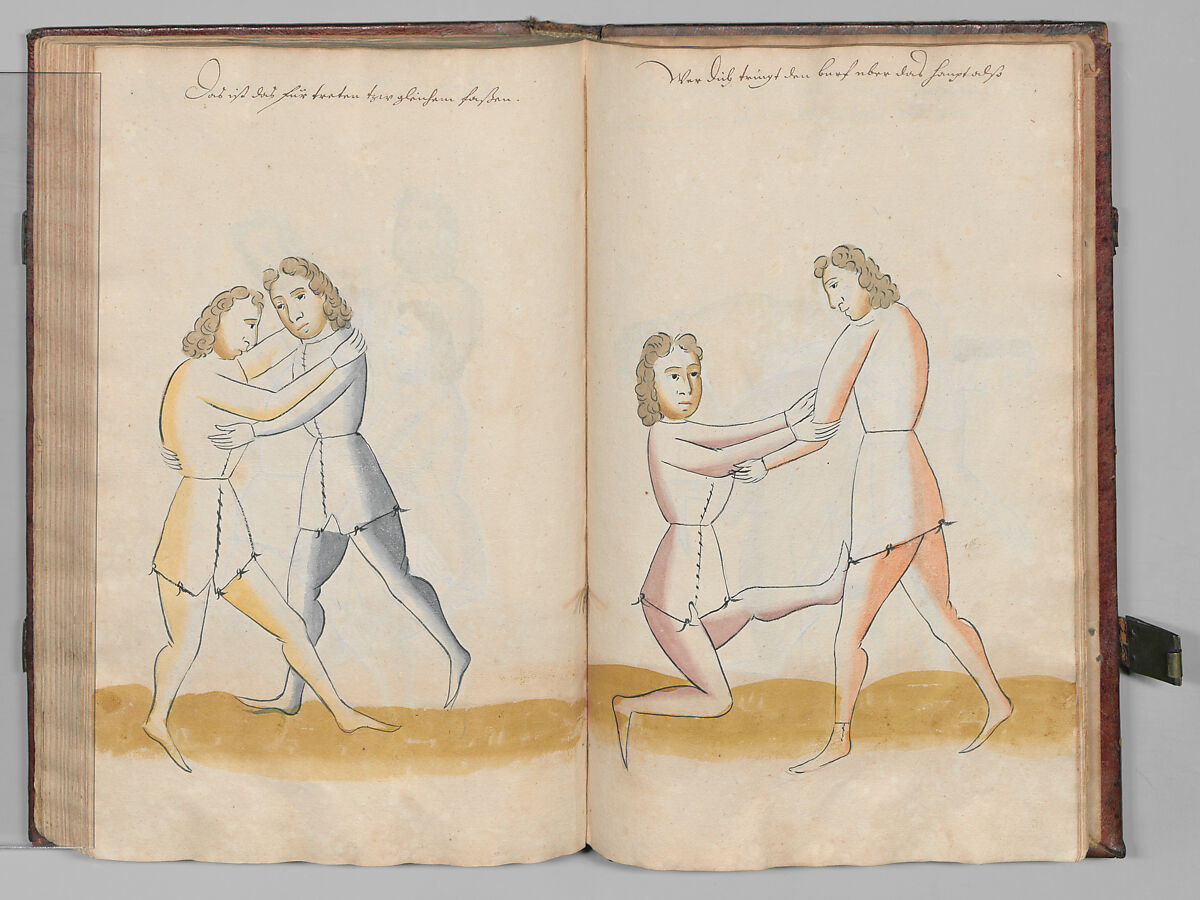 Das ist das für treten uß gleichem faßen.
Wer dich tringt den wurf uber das haupt also